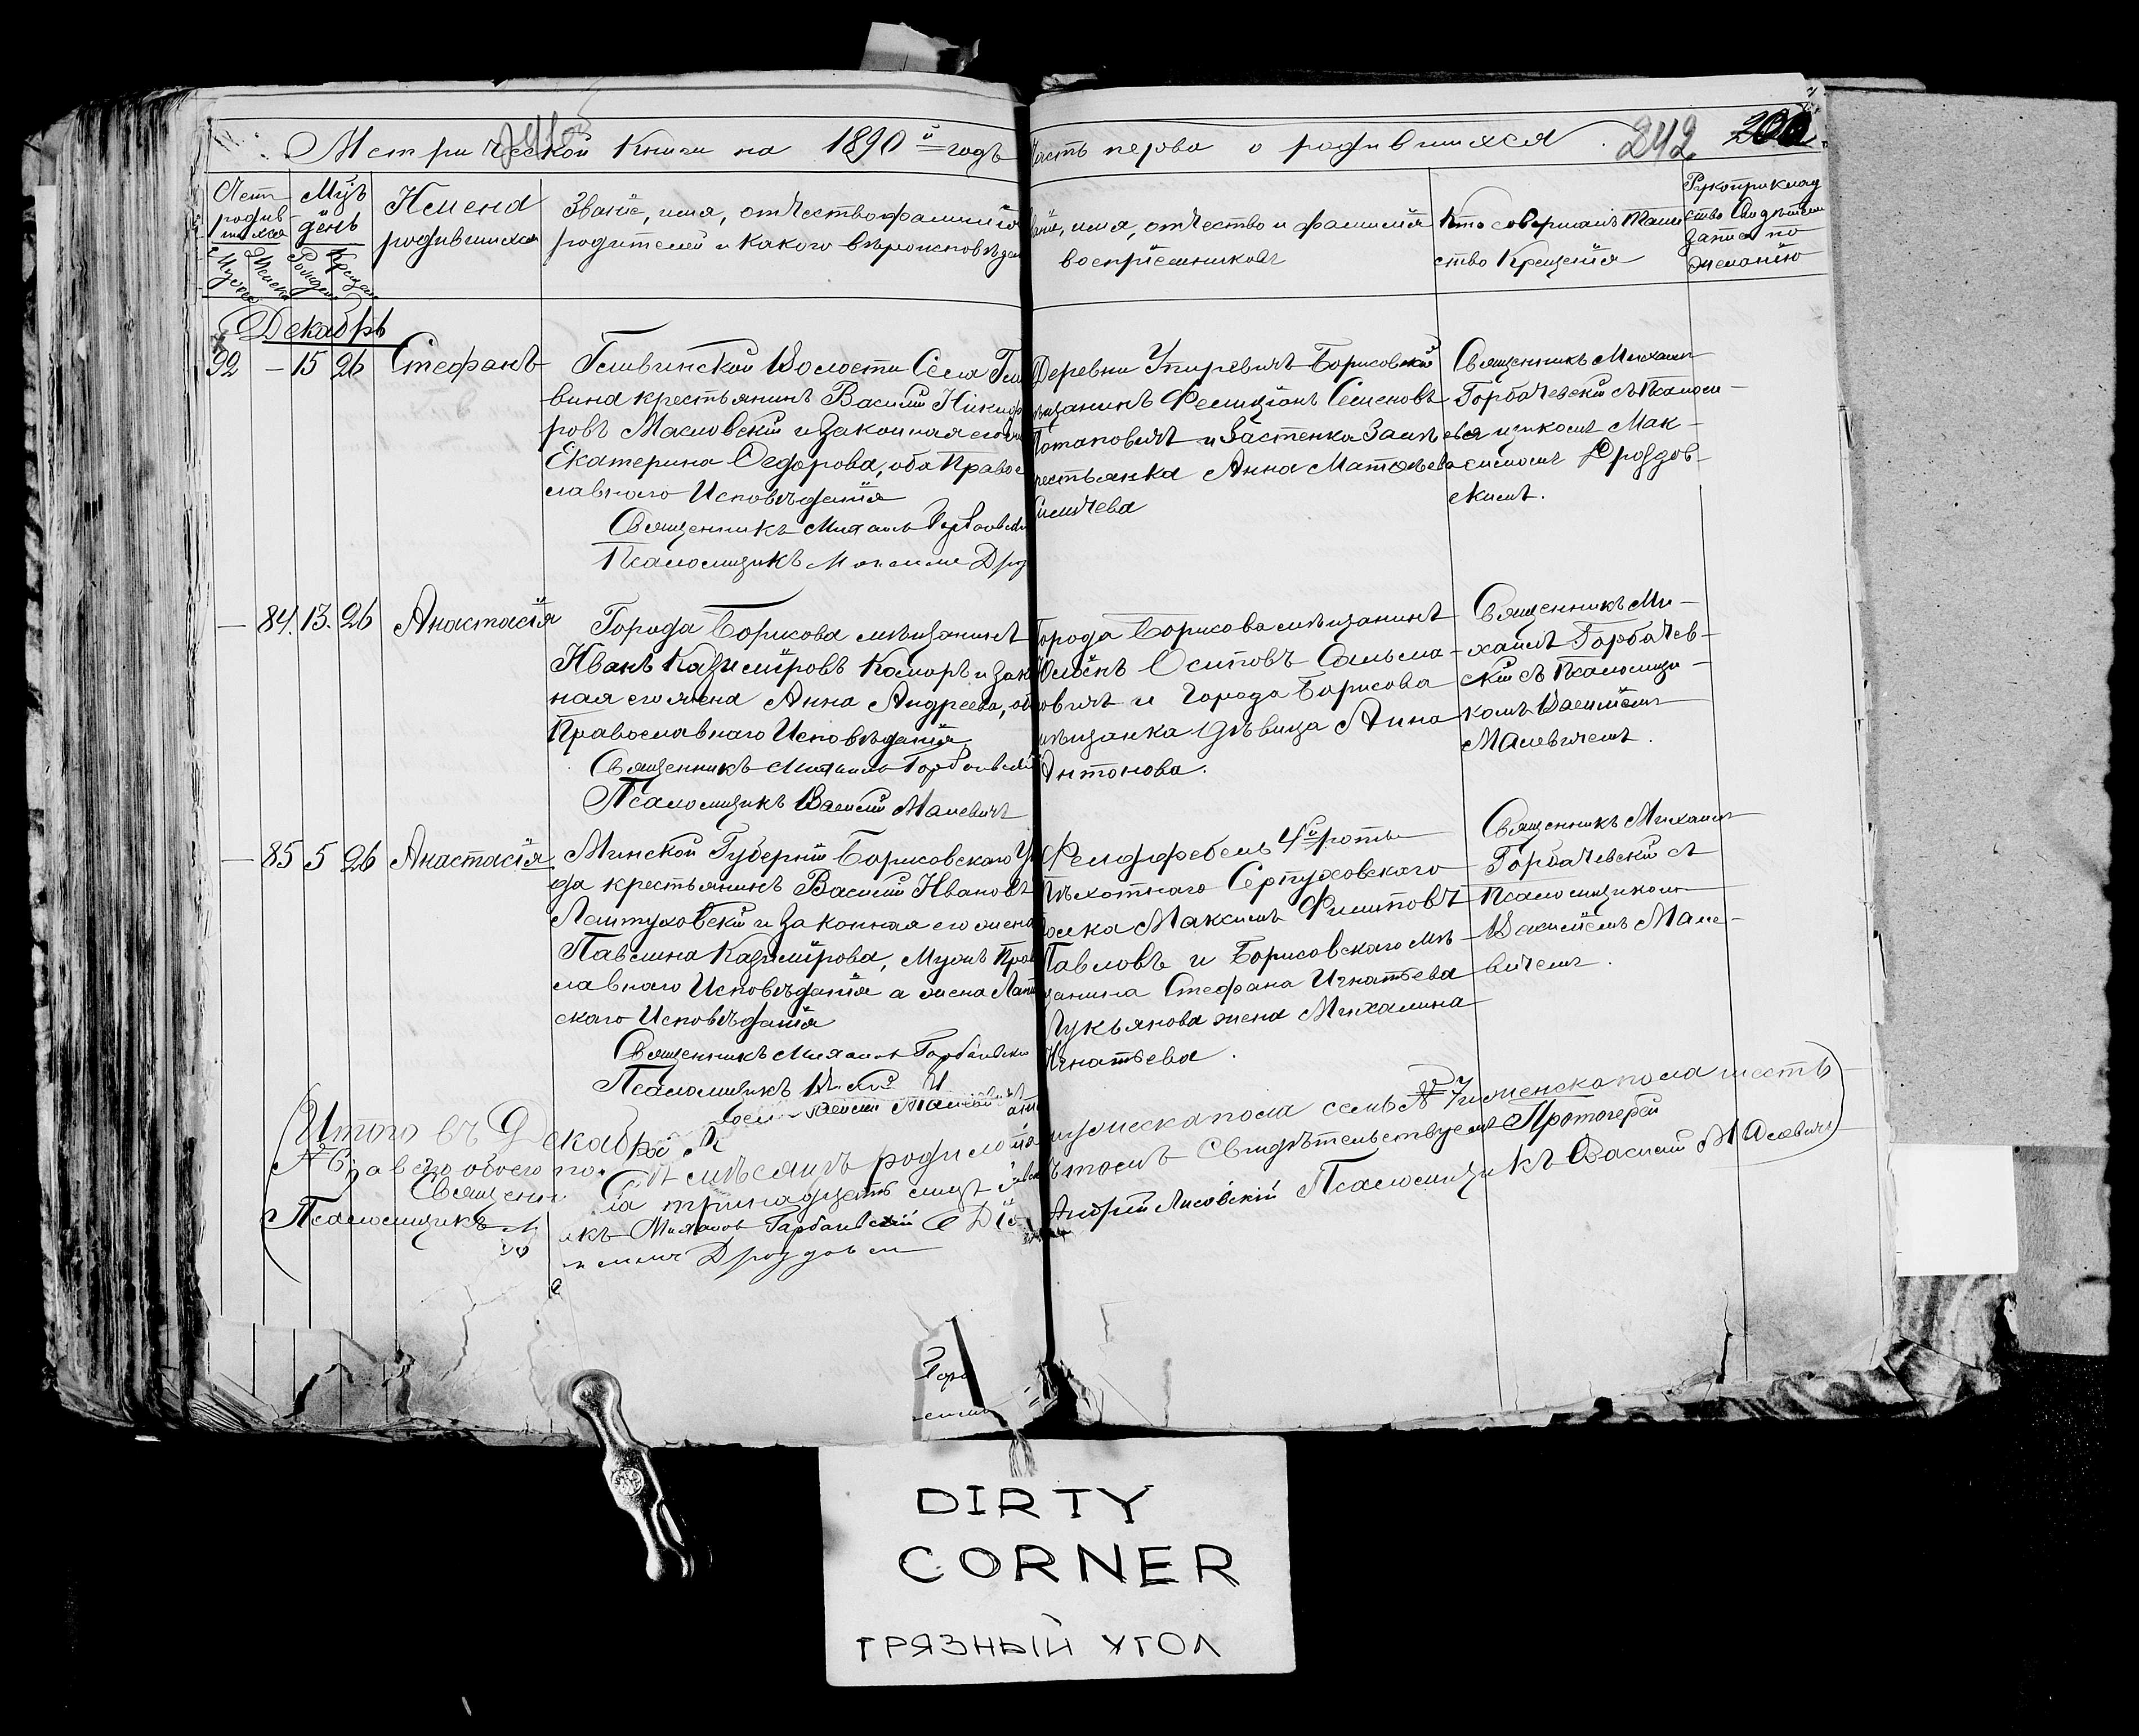 Метрической Книги на 1890й годъ
Часть перва о родившихся 242
Имена родившихся
Званіе, имя, отчество фамилія
родителей и какого вѣроисповѣдан
имя, отчество и фамилія
воспріемниковъ
Кто совершалъ Таин
ство Крещенія
Рукоприклад
ство
записи по
желанію
Декабрь
92 — 15 26 Стефанъ
Гливинской Волости Села Гли
вина крестьянинъ Василій Никифо
ровъ Масловскій и законная его
Екатерина Федорова, оба Правос
лавнаго Исповѣданія
Священникъ Михаилъ Горбачевскій
Псаломщикъ Максимъ Дроз
Деревни Упиревичъ Борисовскій
мѣщанинъ Фелиціанъ Семеновъ
Потаповичъ и Застенка
крестьянка Анна Матвѣева
Священникъ Михаилъ
Горбачевскій съ Псаломщ
икомъ Мак-
симомъ Дроздов-
скимъ.
— 84. 13. 26 Анастасія
Города Борисова мѣщанинъ
Иванъ Казиміровъ Комаръ и зак
ная его жена Анна Андреева, об
Православнаго Исповѣданія
Священникъ Михаилъ Горбачевскій
Псаломщикъ Василій Малевичъ
Города Борисова мѣщанинъ
Осиповъ Сальма-
овичъ и Города Борисова
мѣщанка дѣвица Анна
Антонова.
Священникъ Ми-
хаилъ Горбачев-
скій съ Псаломщи-
комъ Василіемъ
Малевичемъ.
— 85 5 26 Анастасія
Минской Губерніи Борисовскаго Уѣ
да крестьянинъ Василій Ивановъ
Лаптуховскій и законная его жена
Павлина Казимірова, Мужъ Прав
славнаго Исповѣданія а жена Лати
скаго Исповѣданія
Священникъ Михаилъ Горбачевскій
Псаломщикъ
Фельдфебель 4й роты
Пѣхотнаго Серпуховскаго
полка Максимъ Филиповъ
Павловъ и Борисовскаго мѣ-
щанина Стефана Игнатьева
Лукьянова жена Михалина
Игнатьева.
Священникъ Михаилъ
Горбачевскій съ
Псаломщикомъ
Василіемъ Мале-
вичемъ.
Итого въ Декабрѣ мѣсяцѣ родилось
мужеска пола семь № 7 и женска пола шесть
№ 6, а всего обоего по ла тринадцать
въ томъ Свидѣтельствуемъ Протоіерей
Священникъ Михаилъ Горбачевскій
Андрей Лисовскій Псаломщикъ Василій Малевичъ
Псаломщикъ Дроздов
Горо
DIRTY
CORNER
ГРЯЗНЫЙ УГОЛ